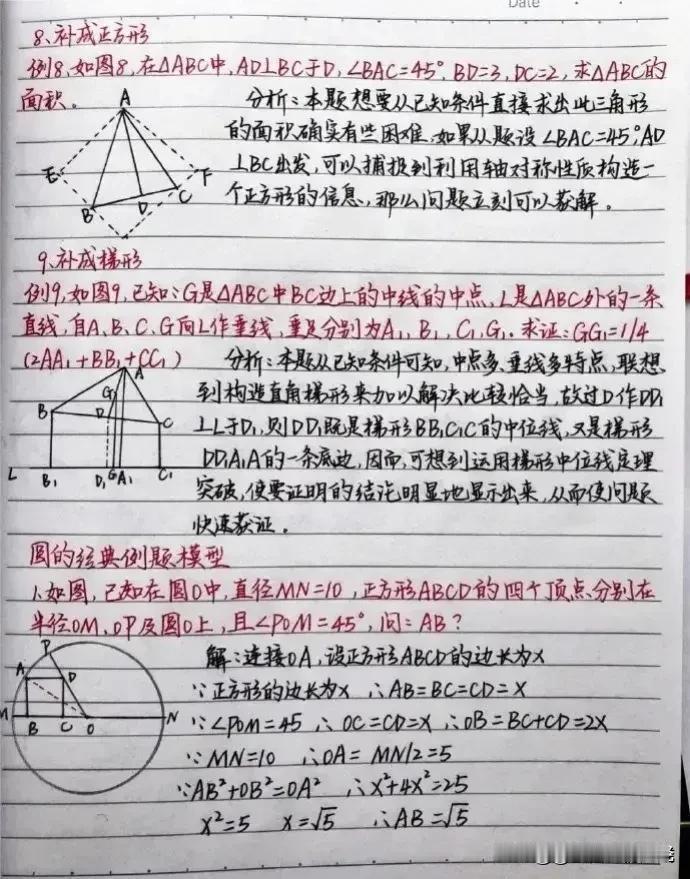 Date
8、补成正方形
例8、如图8,在△ABC中,AD⊥BC于D,∠BAC=45°,BD=3,DC=2,求△ABC的
面积。
分析:本题想要从已知条件直接求出此三角形
的面积确实有些困难,如果从题设∠BAC=45°,AD
⊥BC出发,可以捕捉到利用轴对称性质构造一
个正方形的信息,那么问题立刻可以获解。
A
E
F
B
D
C
9、补成梯形
例9,如图9,已知:G是△ABC中BC边上的中线的中点,L是△ABC外的一条
直线,自A、B、C、G向L作垂线,垂足分别为A₁、B₁、C₁、G₁。求证:GG₁=1/4
(2AA₁+BB₁+CC₁)
分析:本题从已知条件可知,中点多、垂线多特点,联想
到构造直角梯形来加以解决比较恰当,故过D作DD₁
⊥L于D₁,则DD₁既是梯形BB₁C₁C的中位线,又是梯形
DD₁A₁A的一条底边,因而,可想到运用梯形中位线定理
突破,使要证明的结论明显地显示出来,从而使问题
快速获证。
A
G
B
D
C
L
B₁
D₁
G
A₁
C₁
圆的经典例题模型
1、如图,已知在圆O中,直径MN=10,正方形ABCD的四个顶点分别在
半径OM、OP及圆O上,且∠POM=45°,问:AB?
解:连接OA,设正方形ABCD的边长为x
∵正方形的边长为x ∴AB=BC=CD=X
∵∠POM=45 ∴OC=CD=X ∴OB=BC+CD=2X
∵MN=10 ∴OA=MN/2=5
∵AB²+OB²=OA² ∴X²+4X²=25
X²=5 X=√5 ∴AB=√5
P
A
D
M
B
C
O
N